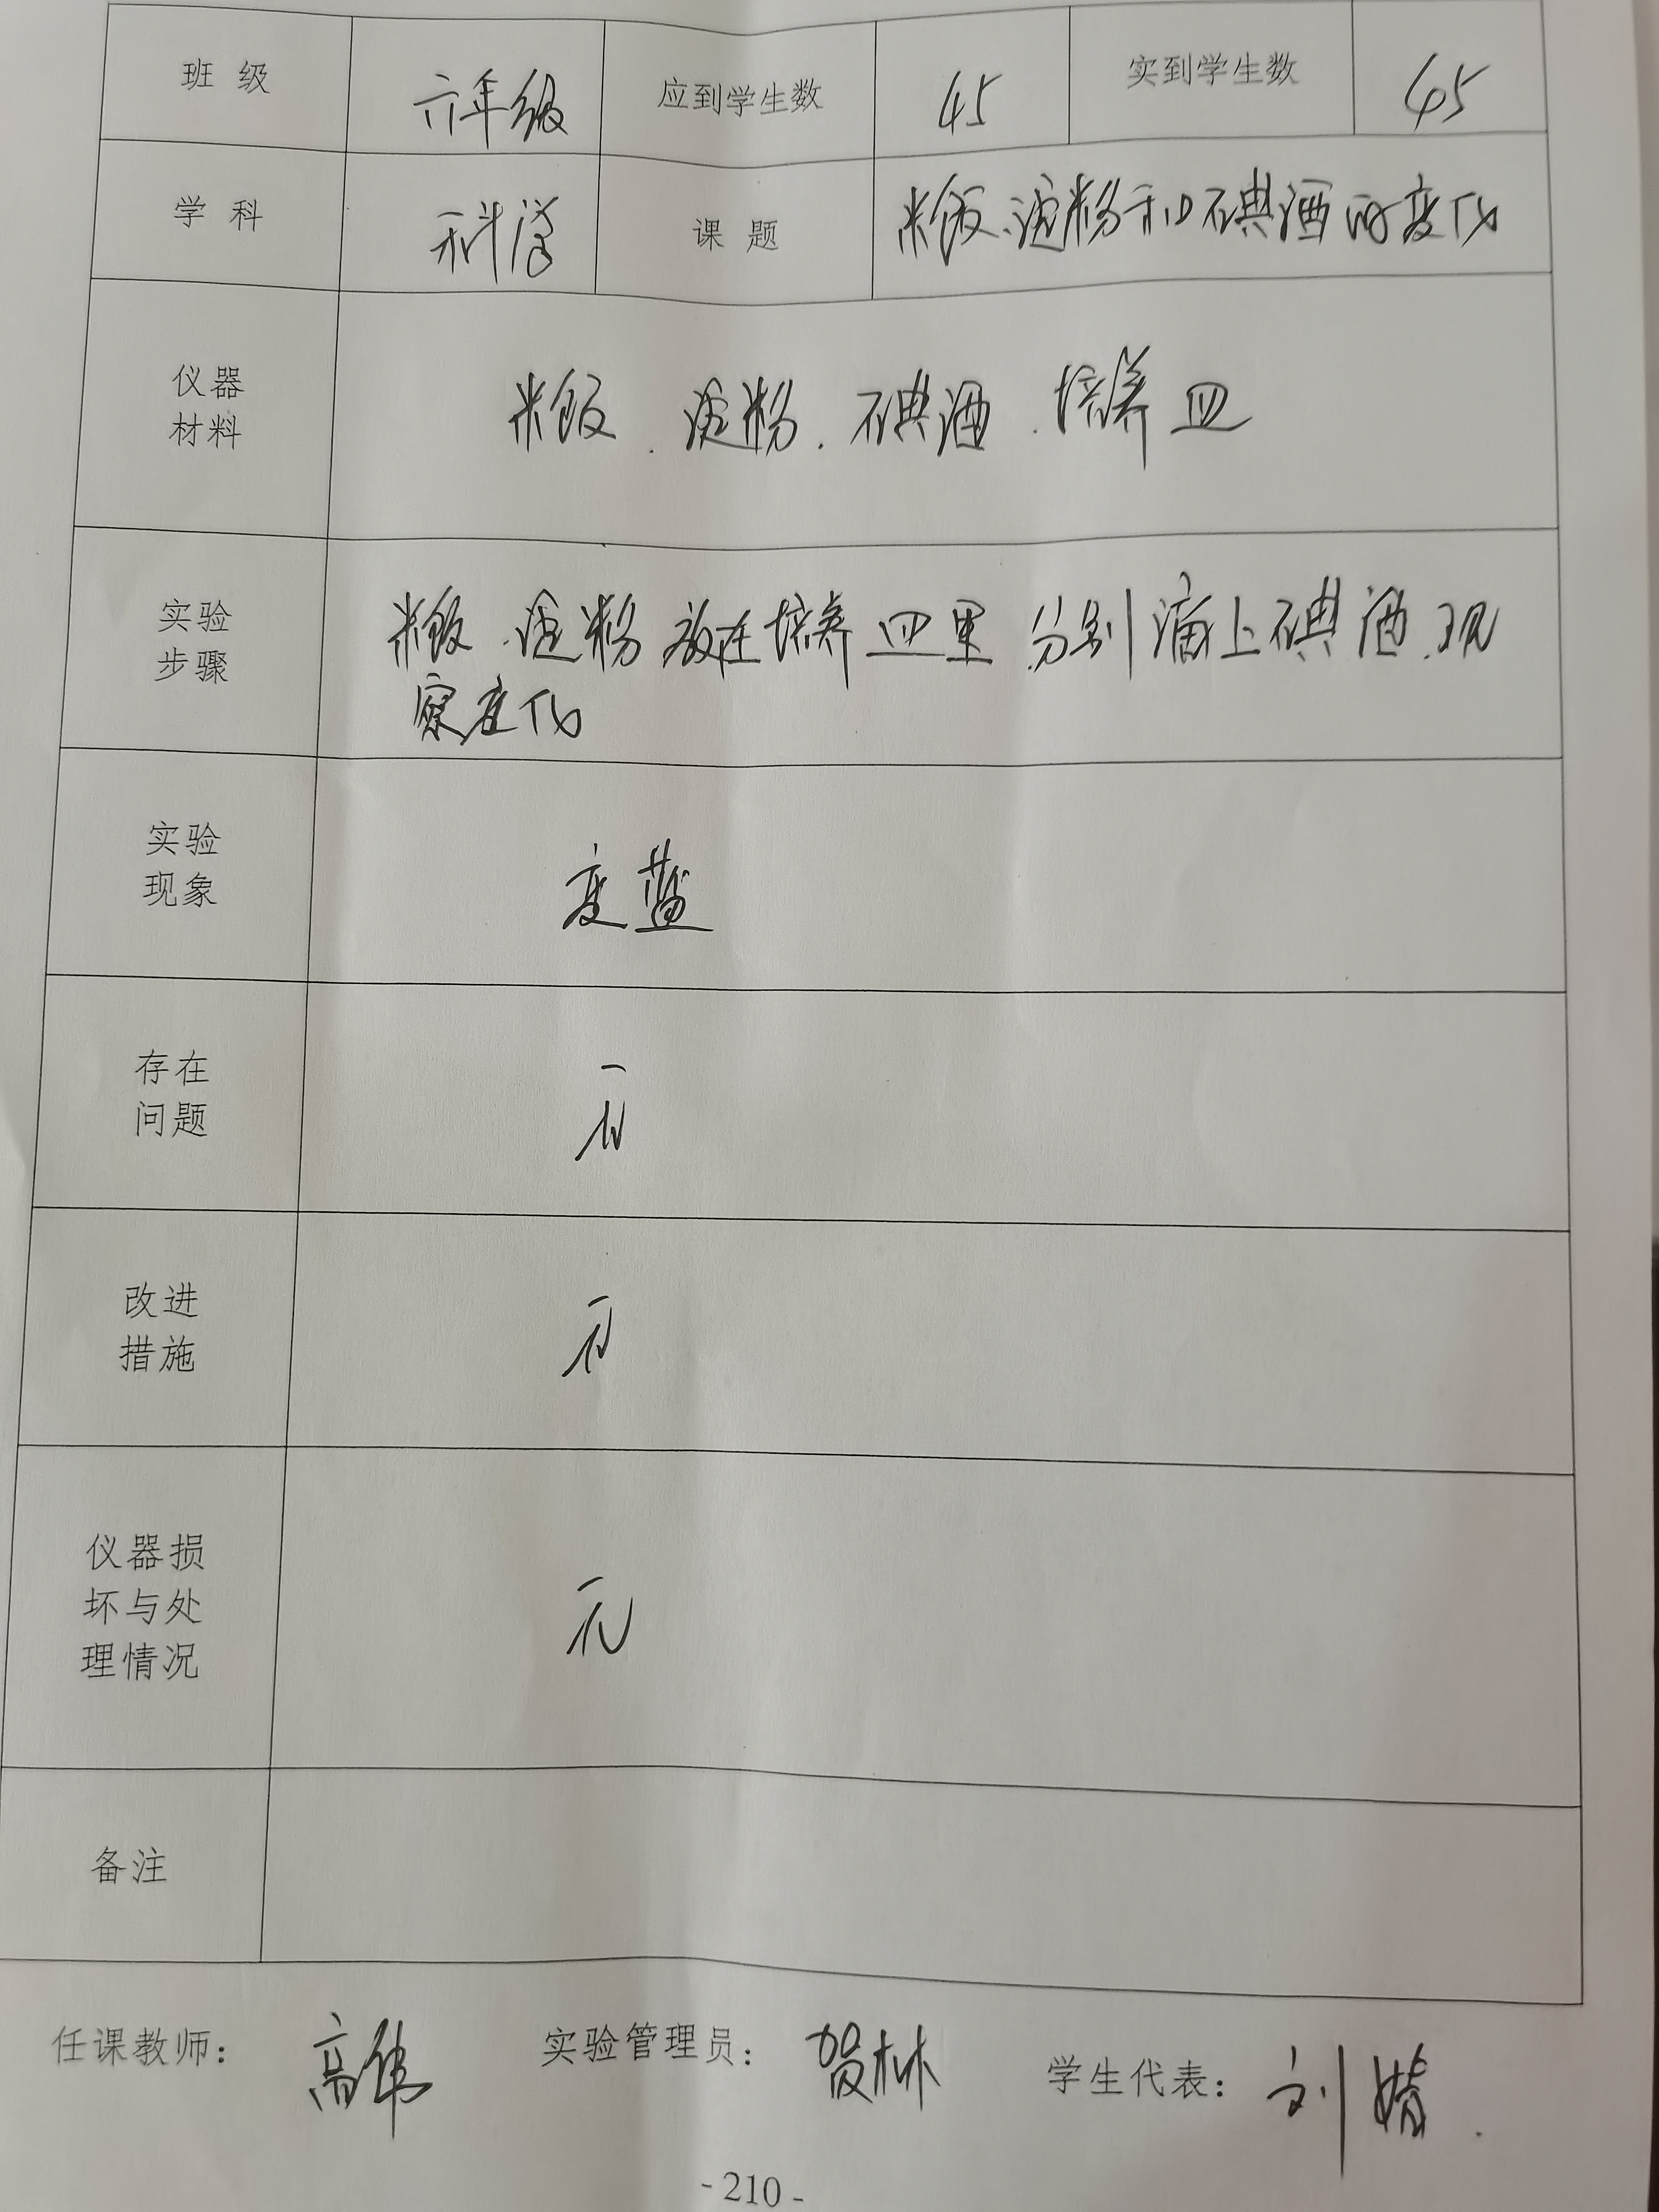 班 级 六年级 应到学生数 45 实到学生数 45
学 科 科学 课 题 米饭、淀粉和碘酒的变化
仪器
材料
米饭．淀粉．碘酒．培养皿
实验
步骤
米饭．淀粉放在培养皿里 分别滴上碘酒．观
察变化
实验
现象
变蓝
存在
问题
无
改进
措施
无
仪器损
坏与处
理情况
无
备注
任课教师： 高伟 实验管理员： 贺林 学生代表： 刘婧．
- 210 -